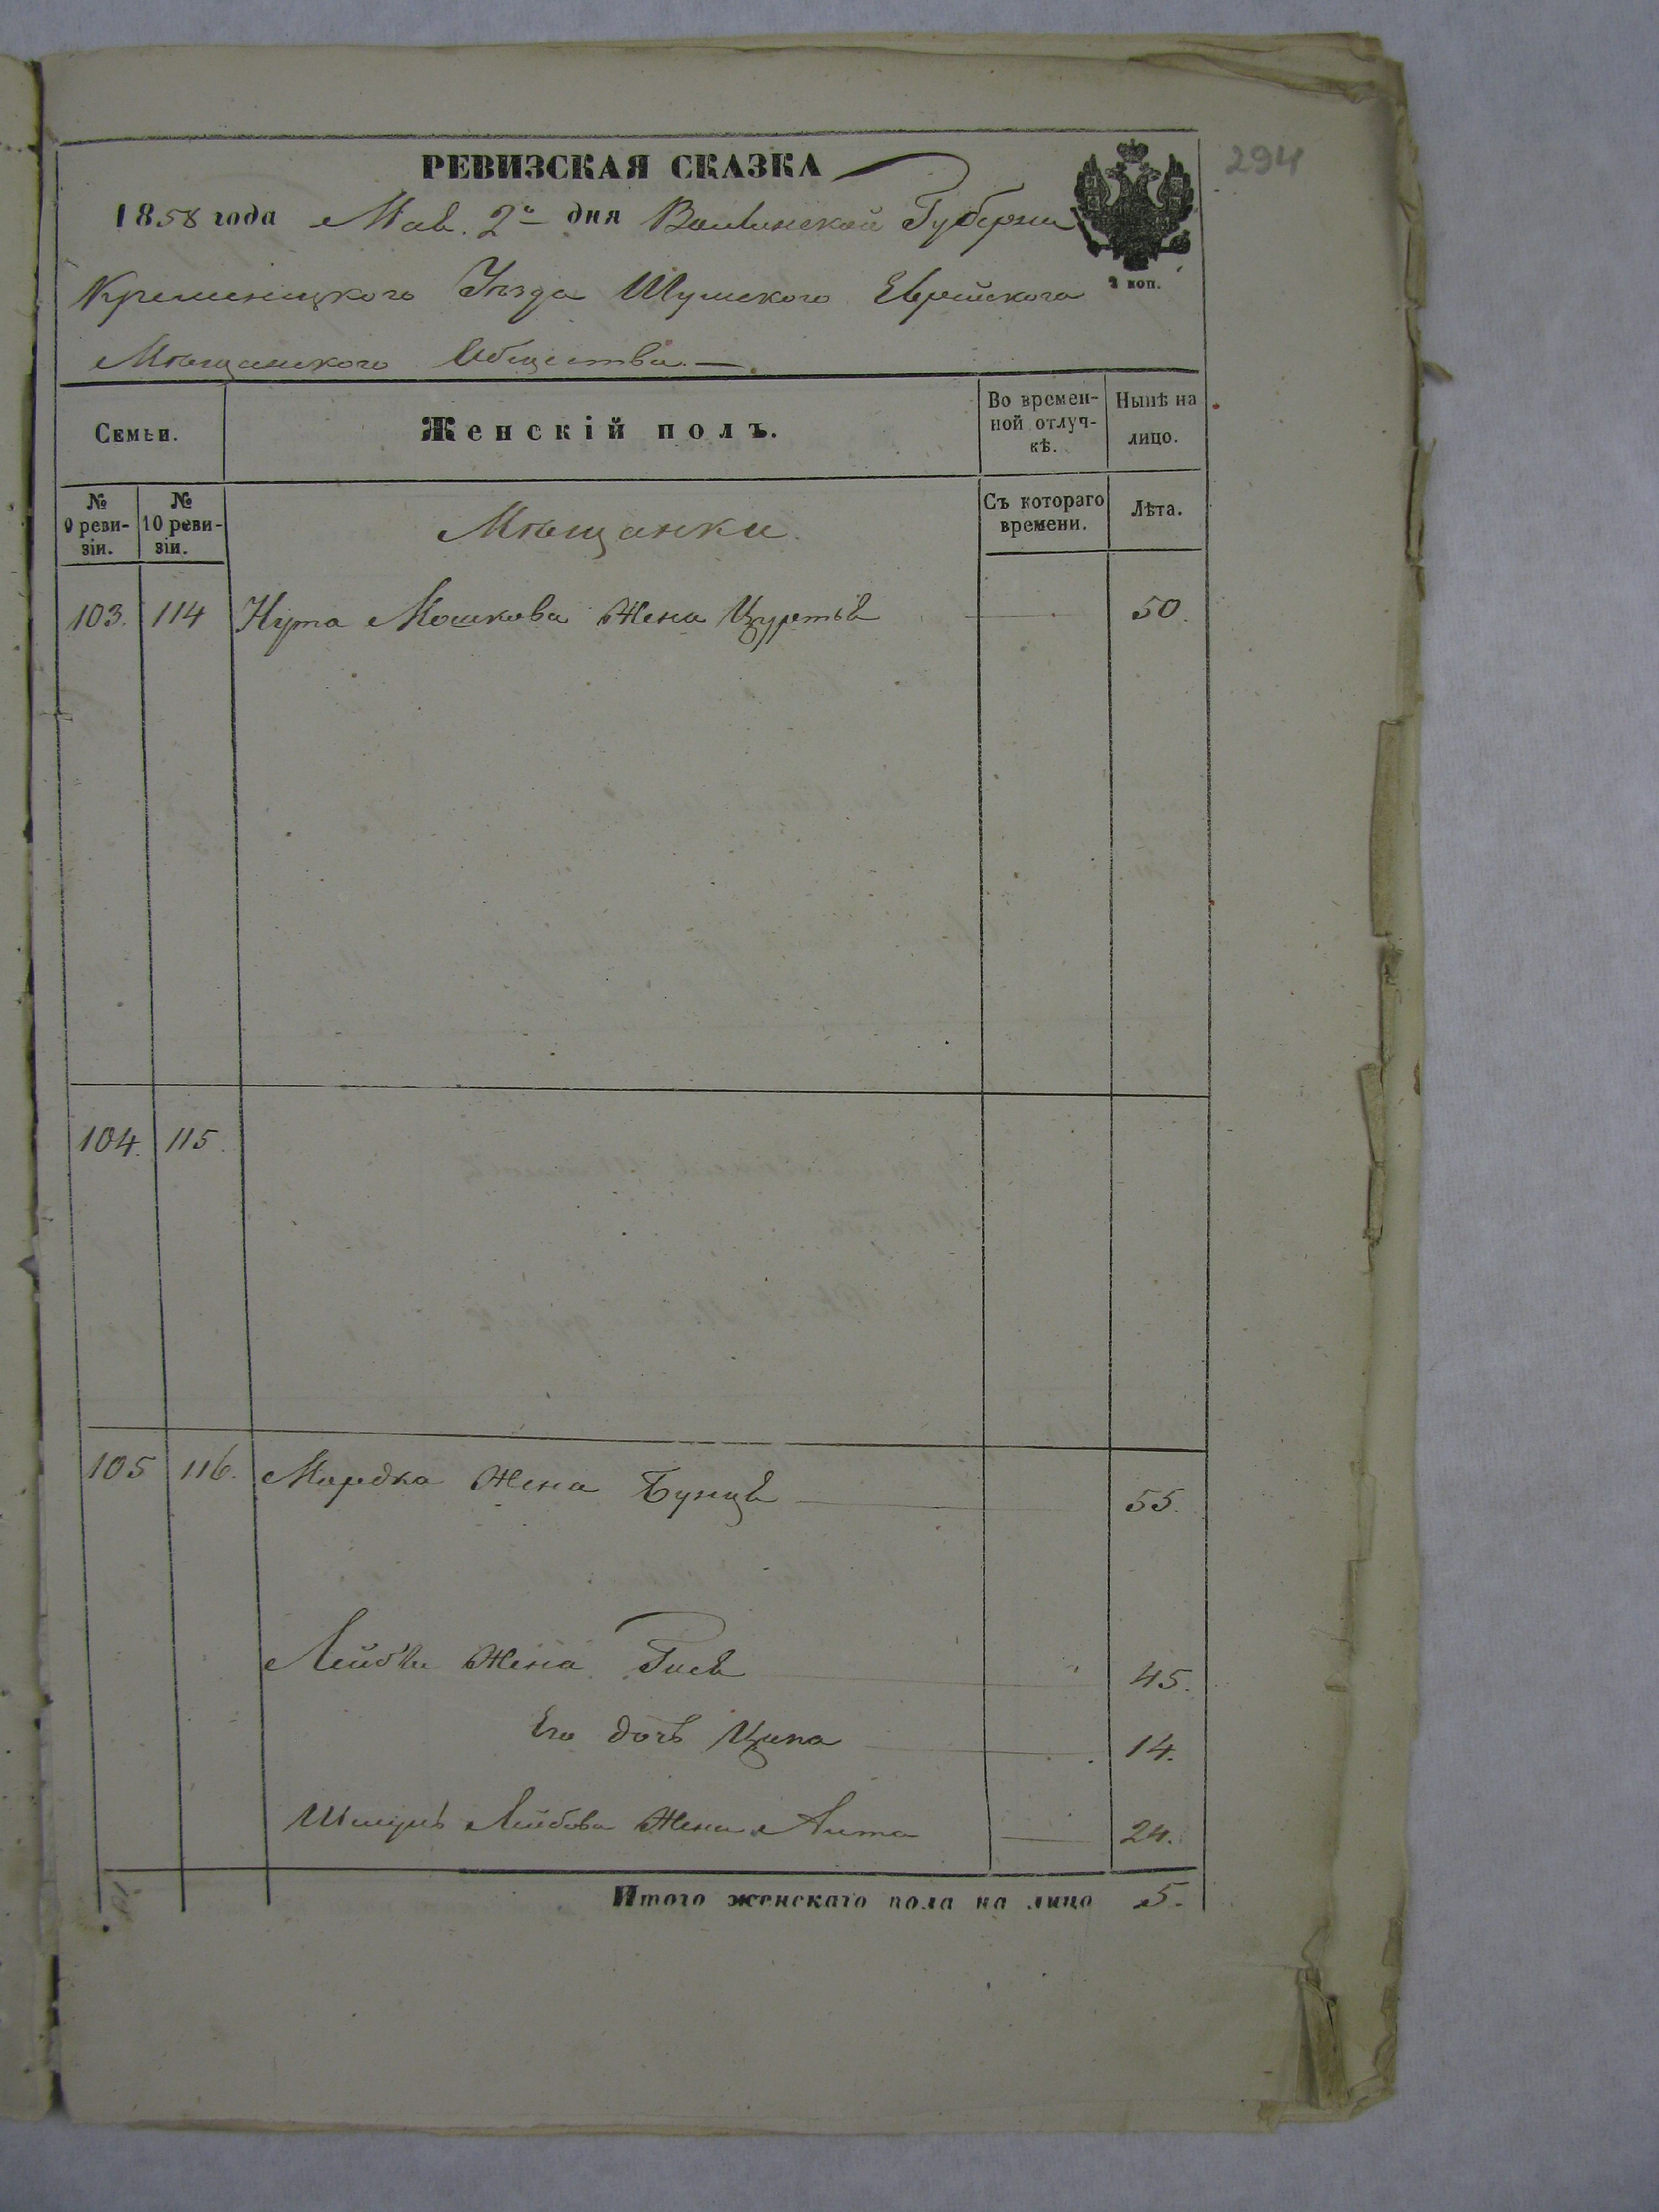 294
РЕВИЗСКАЯ СКАЗКА
1858 года Маія 2го дня Волынской Губерніи
2 коп.
Кременецкого Уѣзда Шумского Еврейского
Мѣщанского Общества. —
Семьи.
Женскій полъ.
Во времен-
ной отлуч-
кѣ.
Нынѣ на
лицо.
№
9 реви-
зіи.
№
10 реви-
зіи.
Мѣщанки.
Съ котораго
времени.
Лѣта.
103. 114 Нута Мошкова Жена 50.
104. 115.
105 116. Мордка Жена Бунця 55.
Лейбы Жена Рися 45.
Его дочь Ципа 14.
Шмуль Лейбова Жена 24.
Итого женскаго пола на лицо 5.